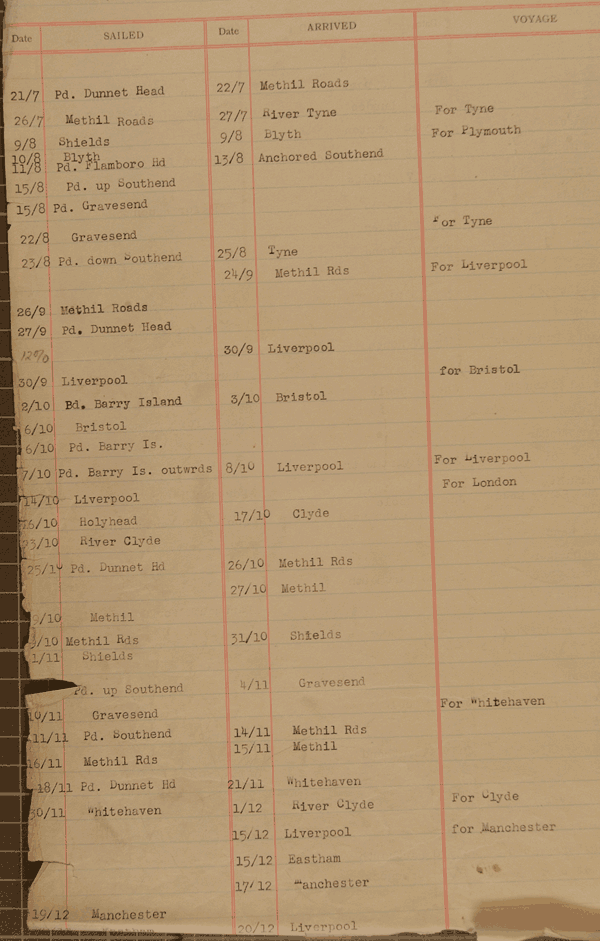 Date SAILED Date ARRIVED VOYAGE
21/7 Pd. Dunnet Head 22/7 Methil Roads
26/7 Methil Roads 27/7 River Tyne For Tyne
9/8 Shields 9/8 Blyth For Plymouth
10/8 Blyth
11/8 Pd. Flamboro Hd 13/8 Anchored Southend
15/8 Pd. up Southend
15/8 Pd. Gravesend
22/8 Gravesend for Tyne
23/8 Pd. down Southend 25/8 Tyne
24/9 Methil Rds For Liverpool
26/9 Methil Roads
27/9 Pd. Dunnet Head
30/9 Liverpool
30/9 Liverpool for Bristol
2/10 Bd. Barry Island 3/10 Bristol
6/10 Bristol
6/10 Pd. Barry Is.
7/10 Pd. Barry Is. outwrds 8/10 Liverpool For Liverpool
14/10 Liverpool For London
16/10 Holyhead 17/10 Clyde
23/10 River Clyde
25/10 Pd. Dunnet Hd 26/10 Methil Rds
27/10 Methil
/10 Methil
/10 Methil Rds 31/10 Shields
1/11 Shields
Pd. up Southend 4/11 Gravesend
10/11 Gravesend For Whitehaven
11/11 Pd. Southend 14/11 Methil Rds
15/11 Methil
16/11 Methil Rds
18/11 Pd. Dunnet Hd 21/11 Whitehaven
30/11 Whitehaven 1/12 River Clyde For Clyde
15/12 Liverpool for Manchester
15/12 Eastham
17/12 Manchester
19/12 Manchester
20/12 Liverpool